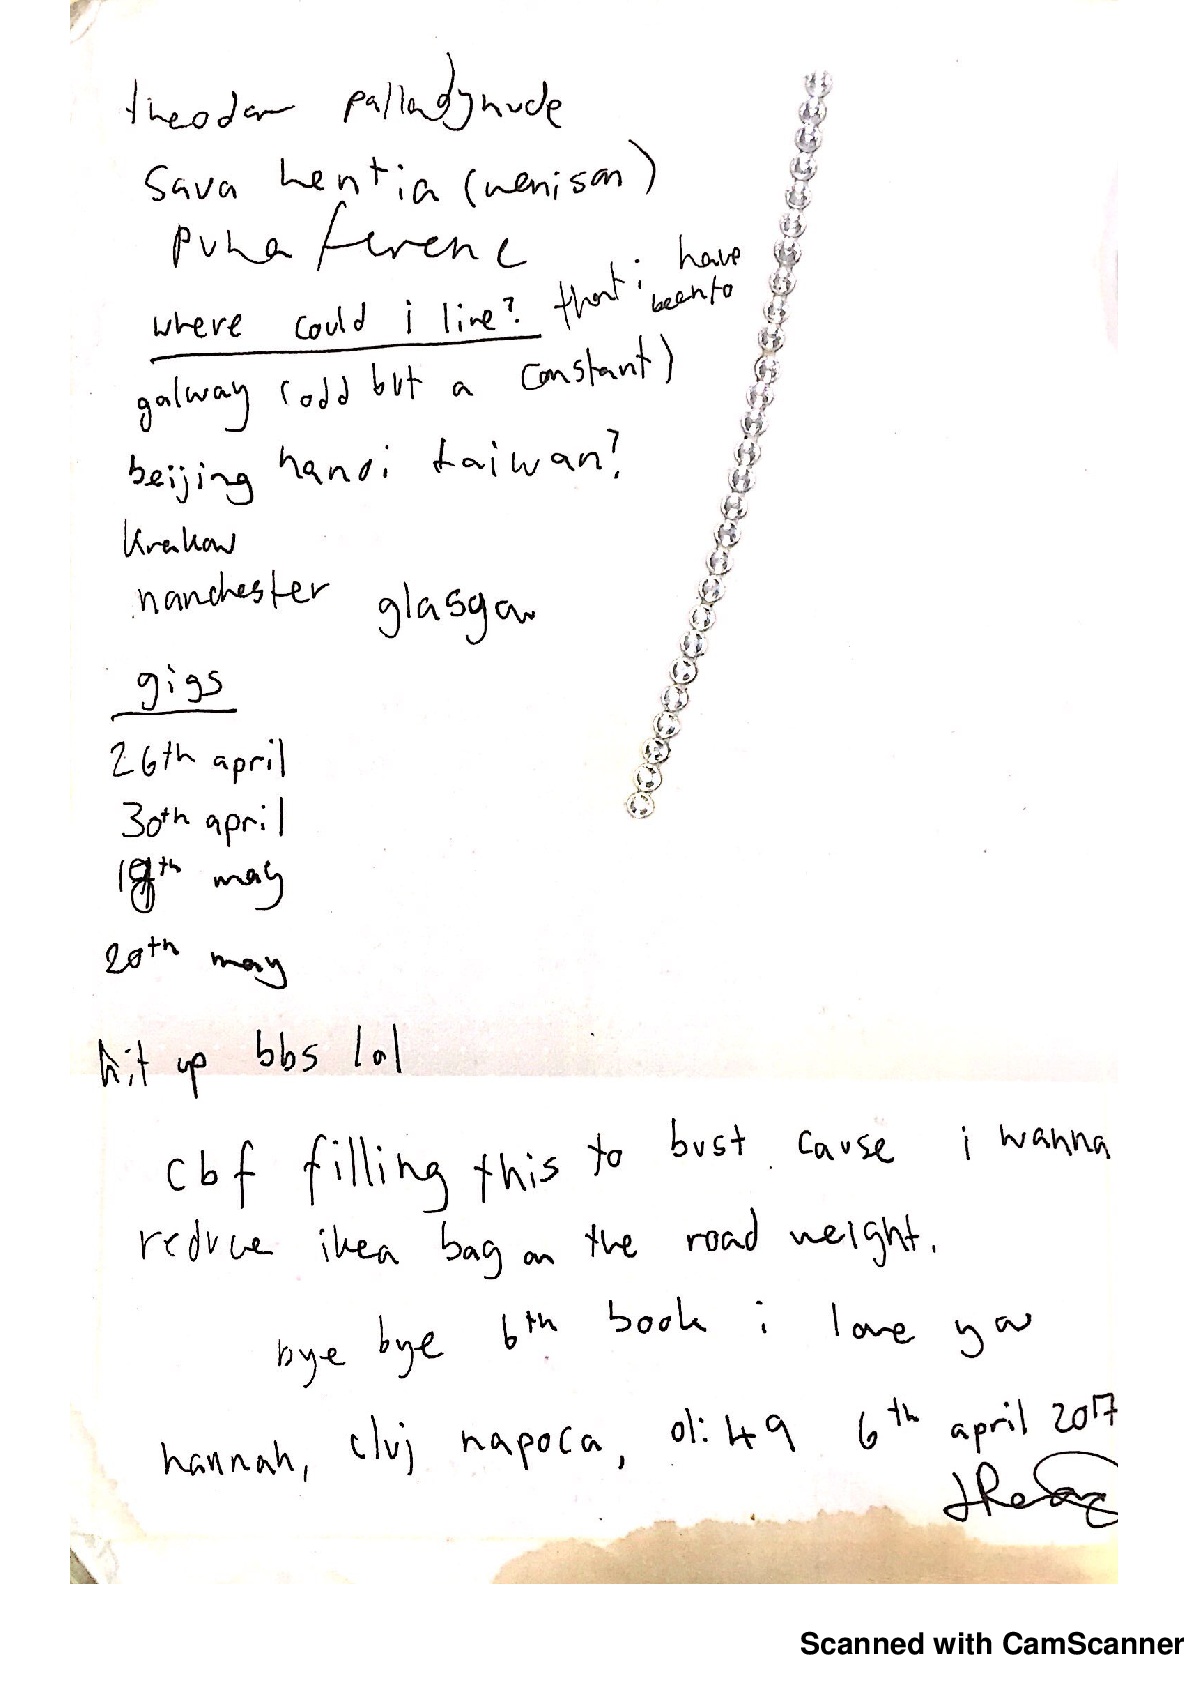 theodor pallady nude
Sava hentia (venison)
puna ferenc
where could i live? that i have been to
galway (odd but a constant)
beijing hanoi taiwan?
krakow
manchester glasgow
gigs
26th april
30th april
19th may
20th may
hit up bbs lol
cbf filling this to bust cause i wanna
reduce ikea bag on the road weight.
bye bye 6th book i love you
hannah, cluj napoca, 01:49 6th april 2017
Scanned with CamScanner